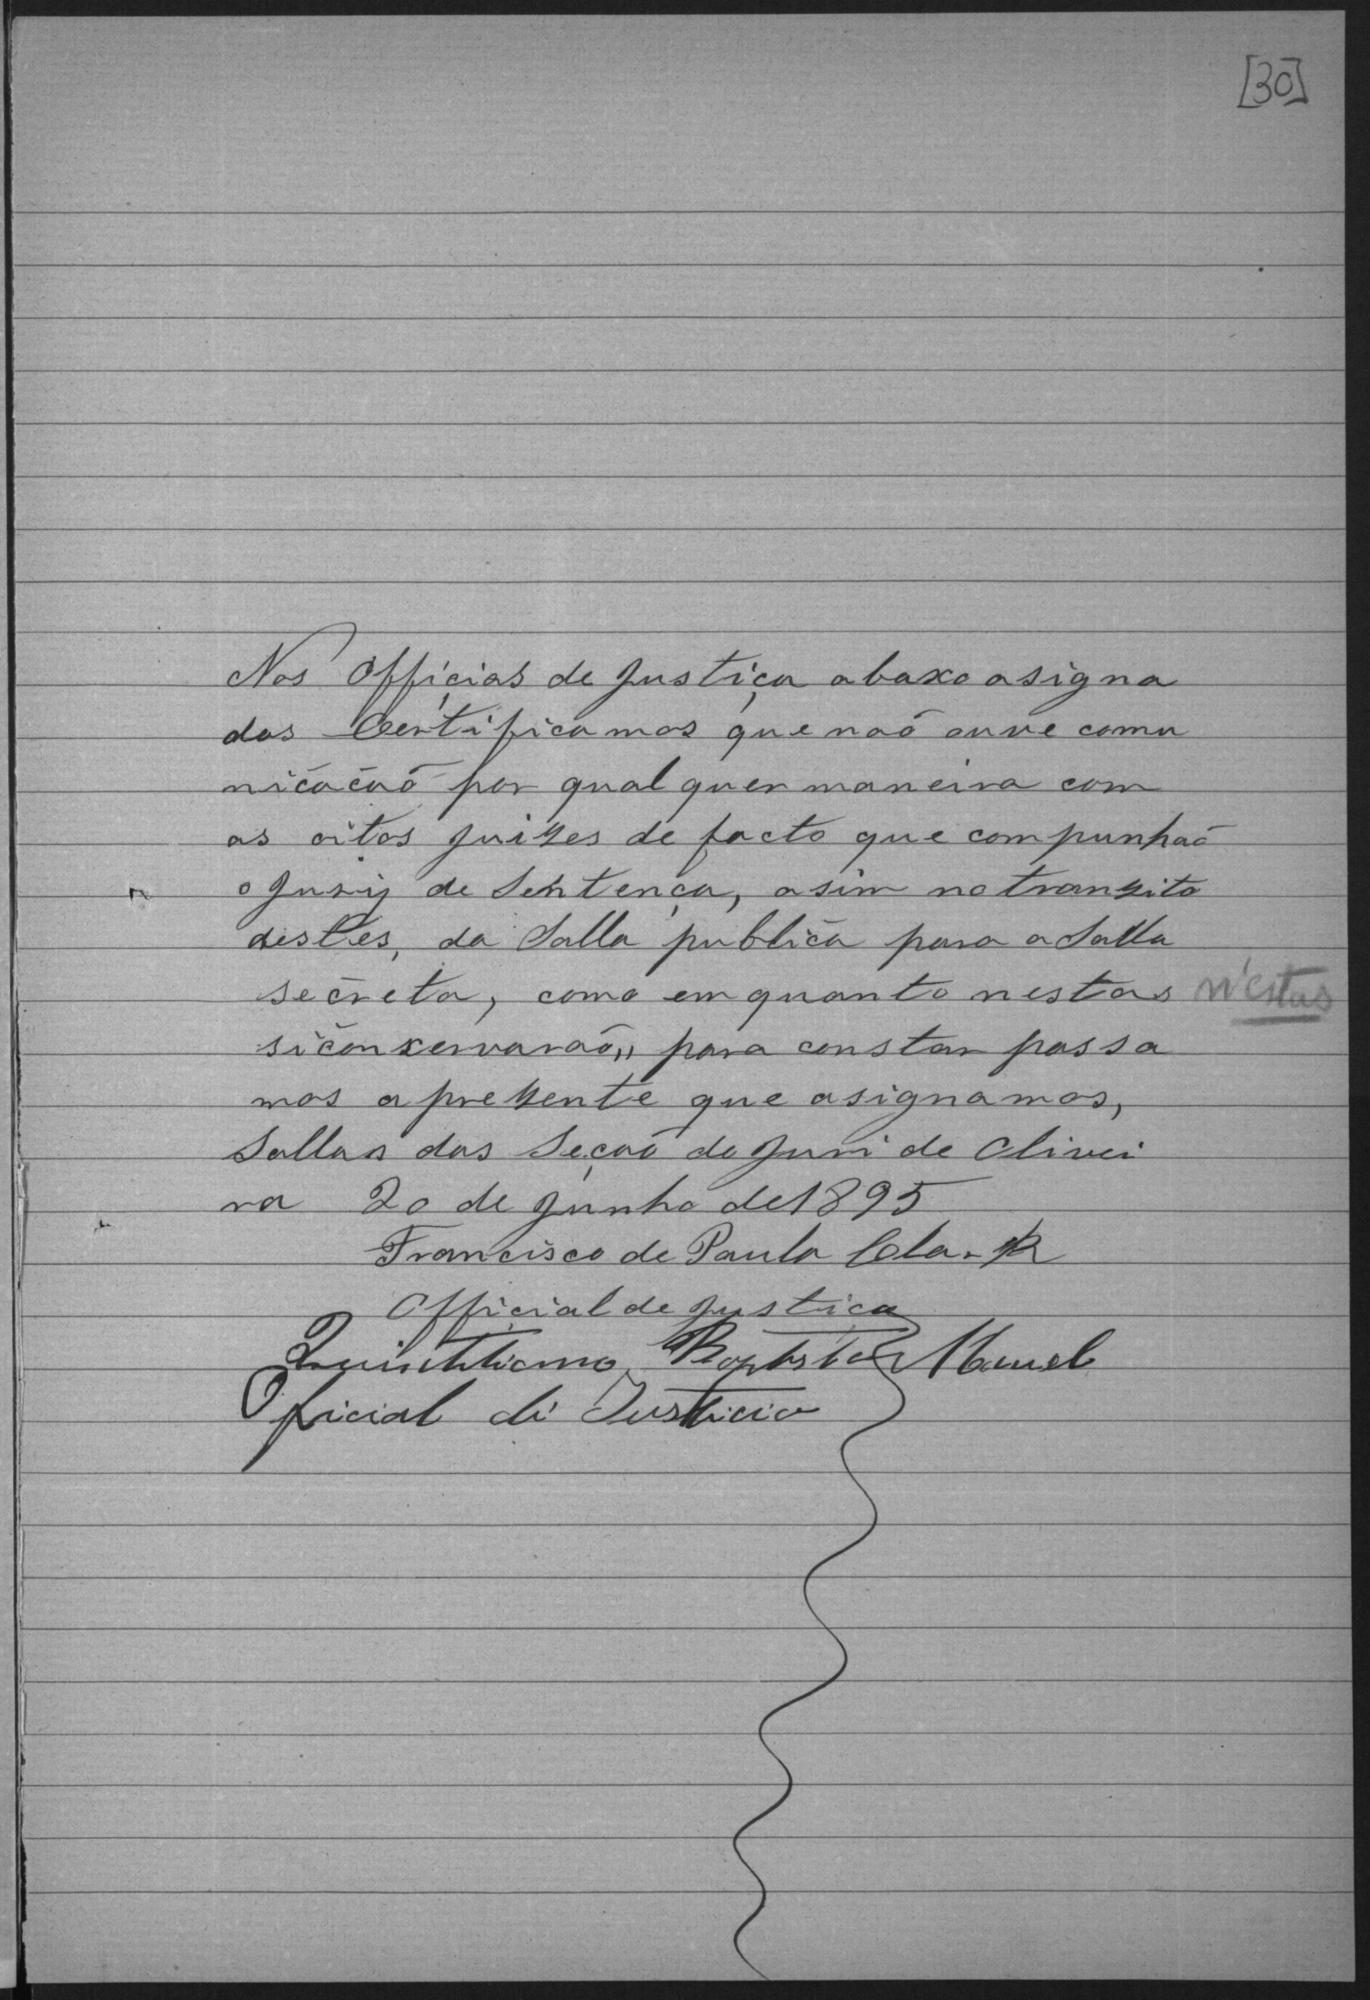 [30]
Nos Officias de Justiça abaxo asigna
dos Certificamos que naõ ouve comu
nicacaõ por qual quer maneira com
os oitos juizes de facto que compunhaõ
o Jury de Sentença, asim no tranzito
destes, da Salla publica para a Salla
secreta, como em quanto nestas n'estas
si conservaraõ,, para constar passa
mos a prezente que asignamos,
Sallas das Seçaõ do Juri de Olivei
ra 20 de Junho de 1895
Francisco de Paula
Official de Justica
Quintiliano Baptista Manoel
Oficial di Justicia